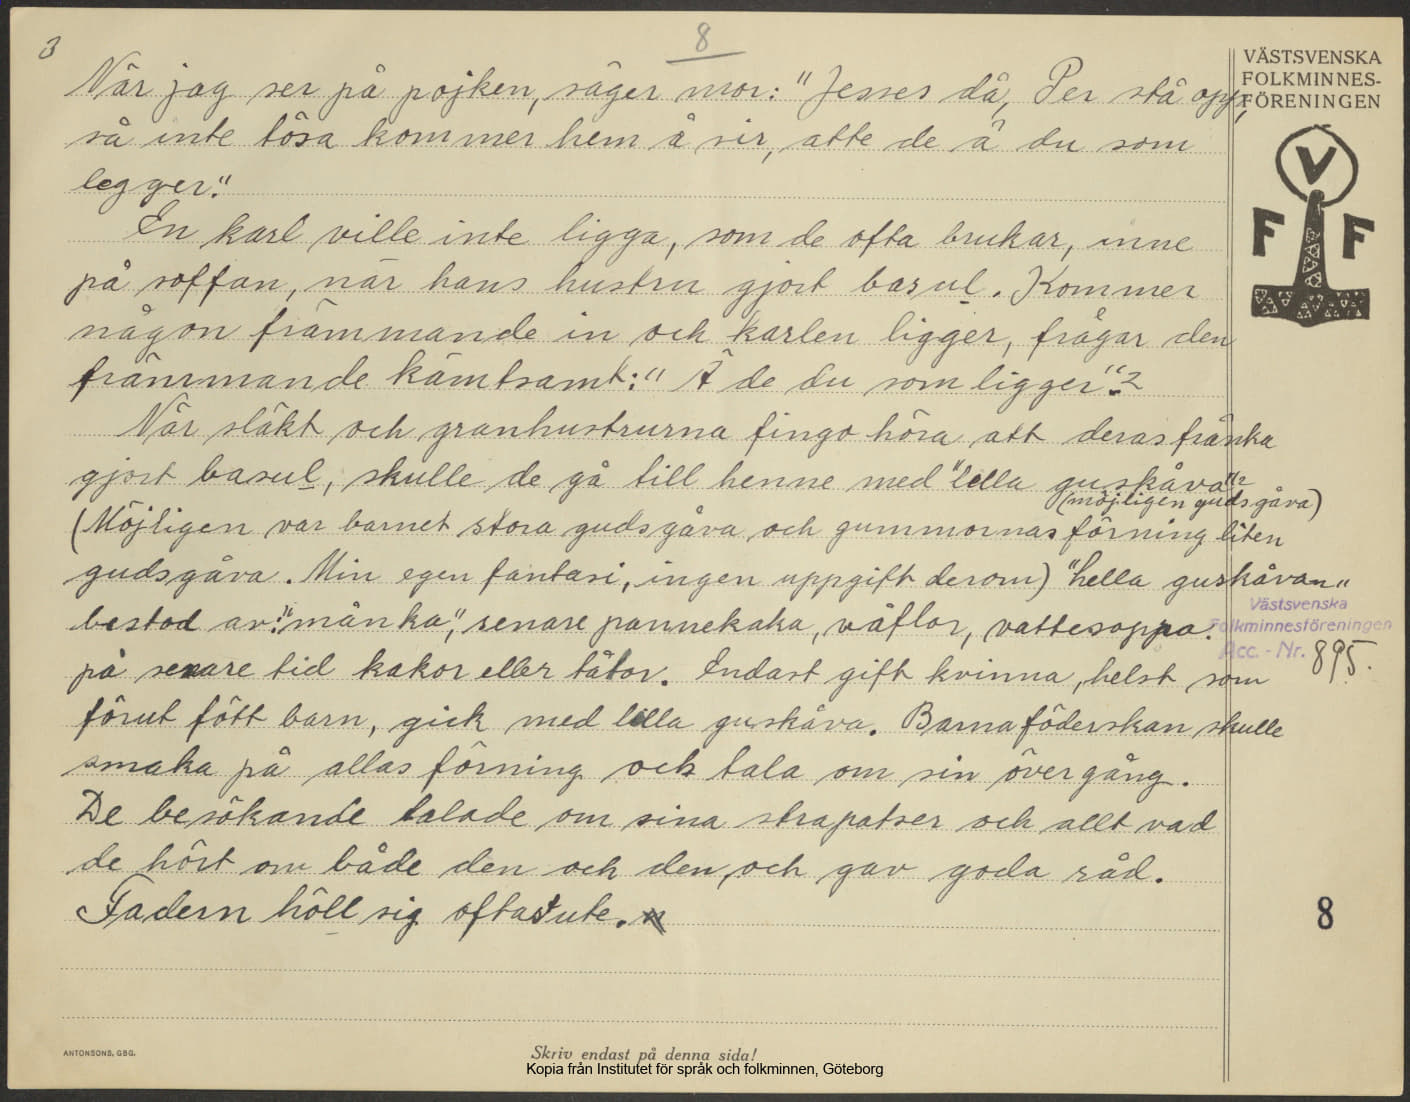 3
8
VÄSTSVENSKA
FOLKMINNES-
FÖRENINGEN
När jag ser på pojken, säger mor: "Jesses då, Per stå opp,
så inte tösa kommer hem å sir, atte de ä du som
legger."
En karl ville inte ligga, som de ofta brukar, inne
på soffan, när hans hustru gjort basul. Kommer
någon främmande in och karlen ligger, frågar den
främmande kämtsamt: "Ä de du som ligger"?
När släkt och granhustrurna fingo höra att deras fränka
gjort basul, skulle de gå till henne med "lella guskåva"
(möjligen gudsgåva)
(Möjligen var barnet stora gudsgåva och gummornas förning liten
gudsgåva. Min egen fantasi, ingen uppgift derom) "hella guskåvan"
bestod av: "månka", senare pannekaka, våflor, vattesoppa.
på senare tid kakor eller tåtor. Endast gift kvinna, helst som
förut fött barn, gick med lilla guskåva. Barnaföderskan skulle
smaka på allas förning och tala om sin övergång.
De besökande talade om sina strapatser och allt vad
de hört om både den och den, och gav goda råd.
Fadern höll sig oftast ute.
V
F F
Västsvenska
Folkminnesföreningen
Acc. - Nr. 895.
8
ANTONSONS, GBG.
Skriv endast på denna sida!
Kopia från Institutet för språk och folkminnen, Göteborg